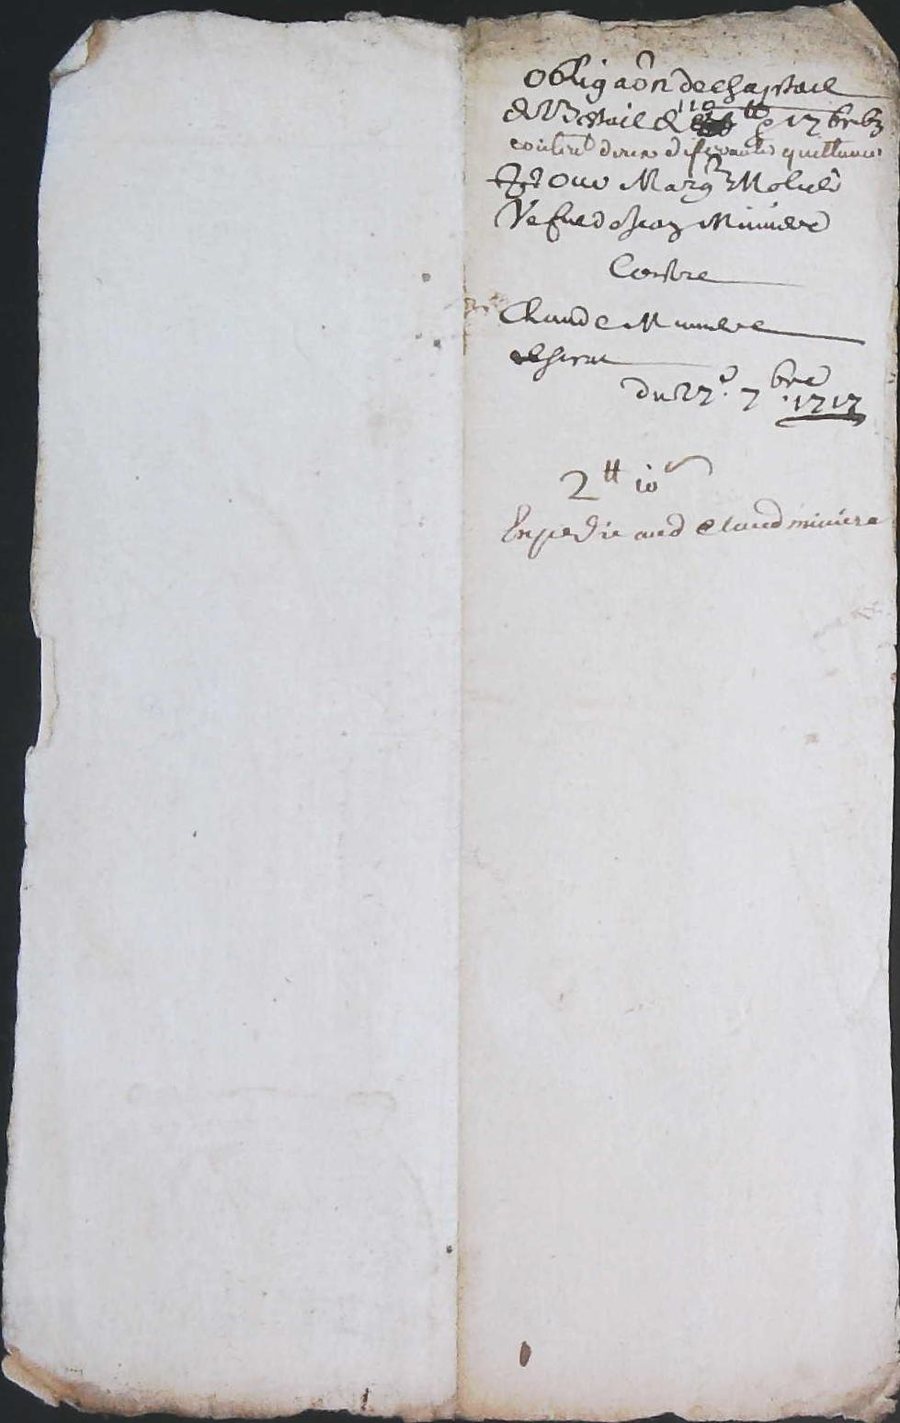 obligaôn de chaptail
de Bestail de 110 tt & 17 brebz
contenᵗ diverses quittances
pour Margᵗᵉ
Vefve de Jean Miniere
Contre
Claude Miniere
son frere
du 27ᵉ 7bre 1717
2 tt 10 s
Expedie aud Claud miniere